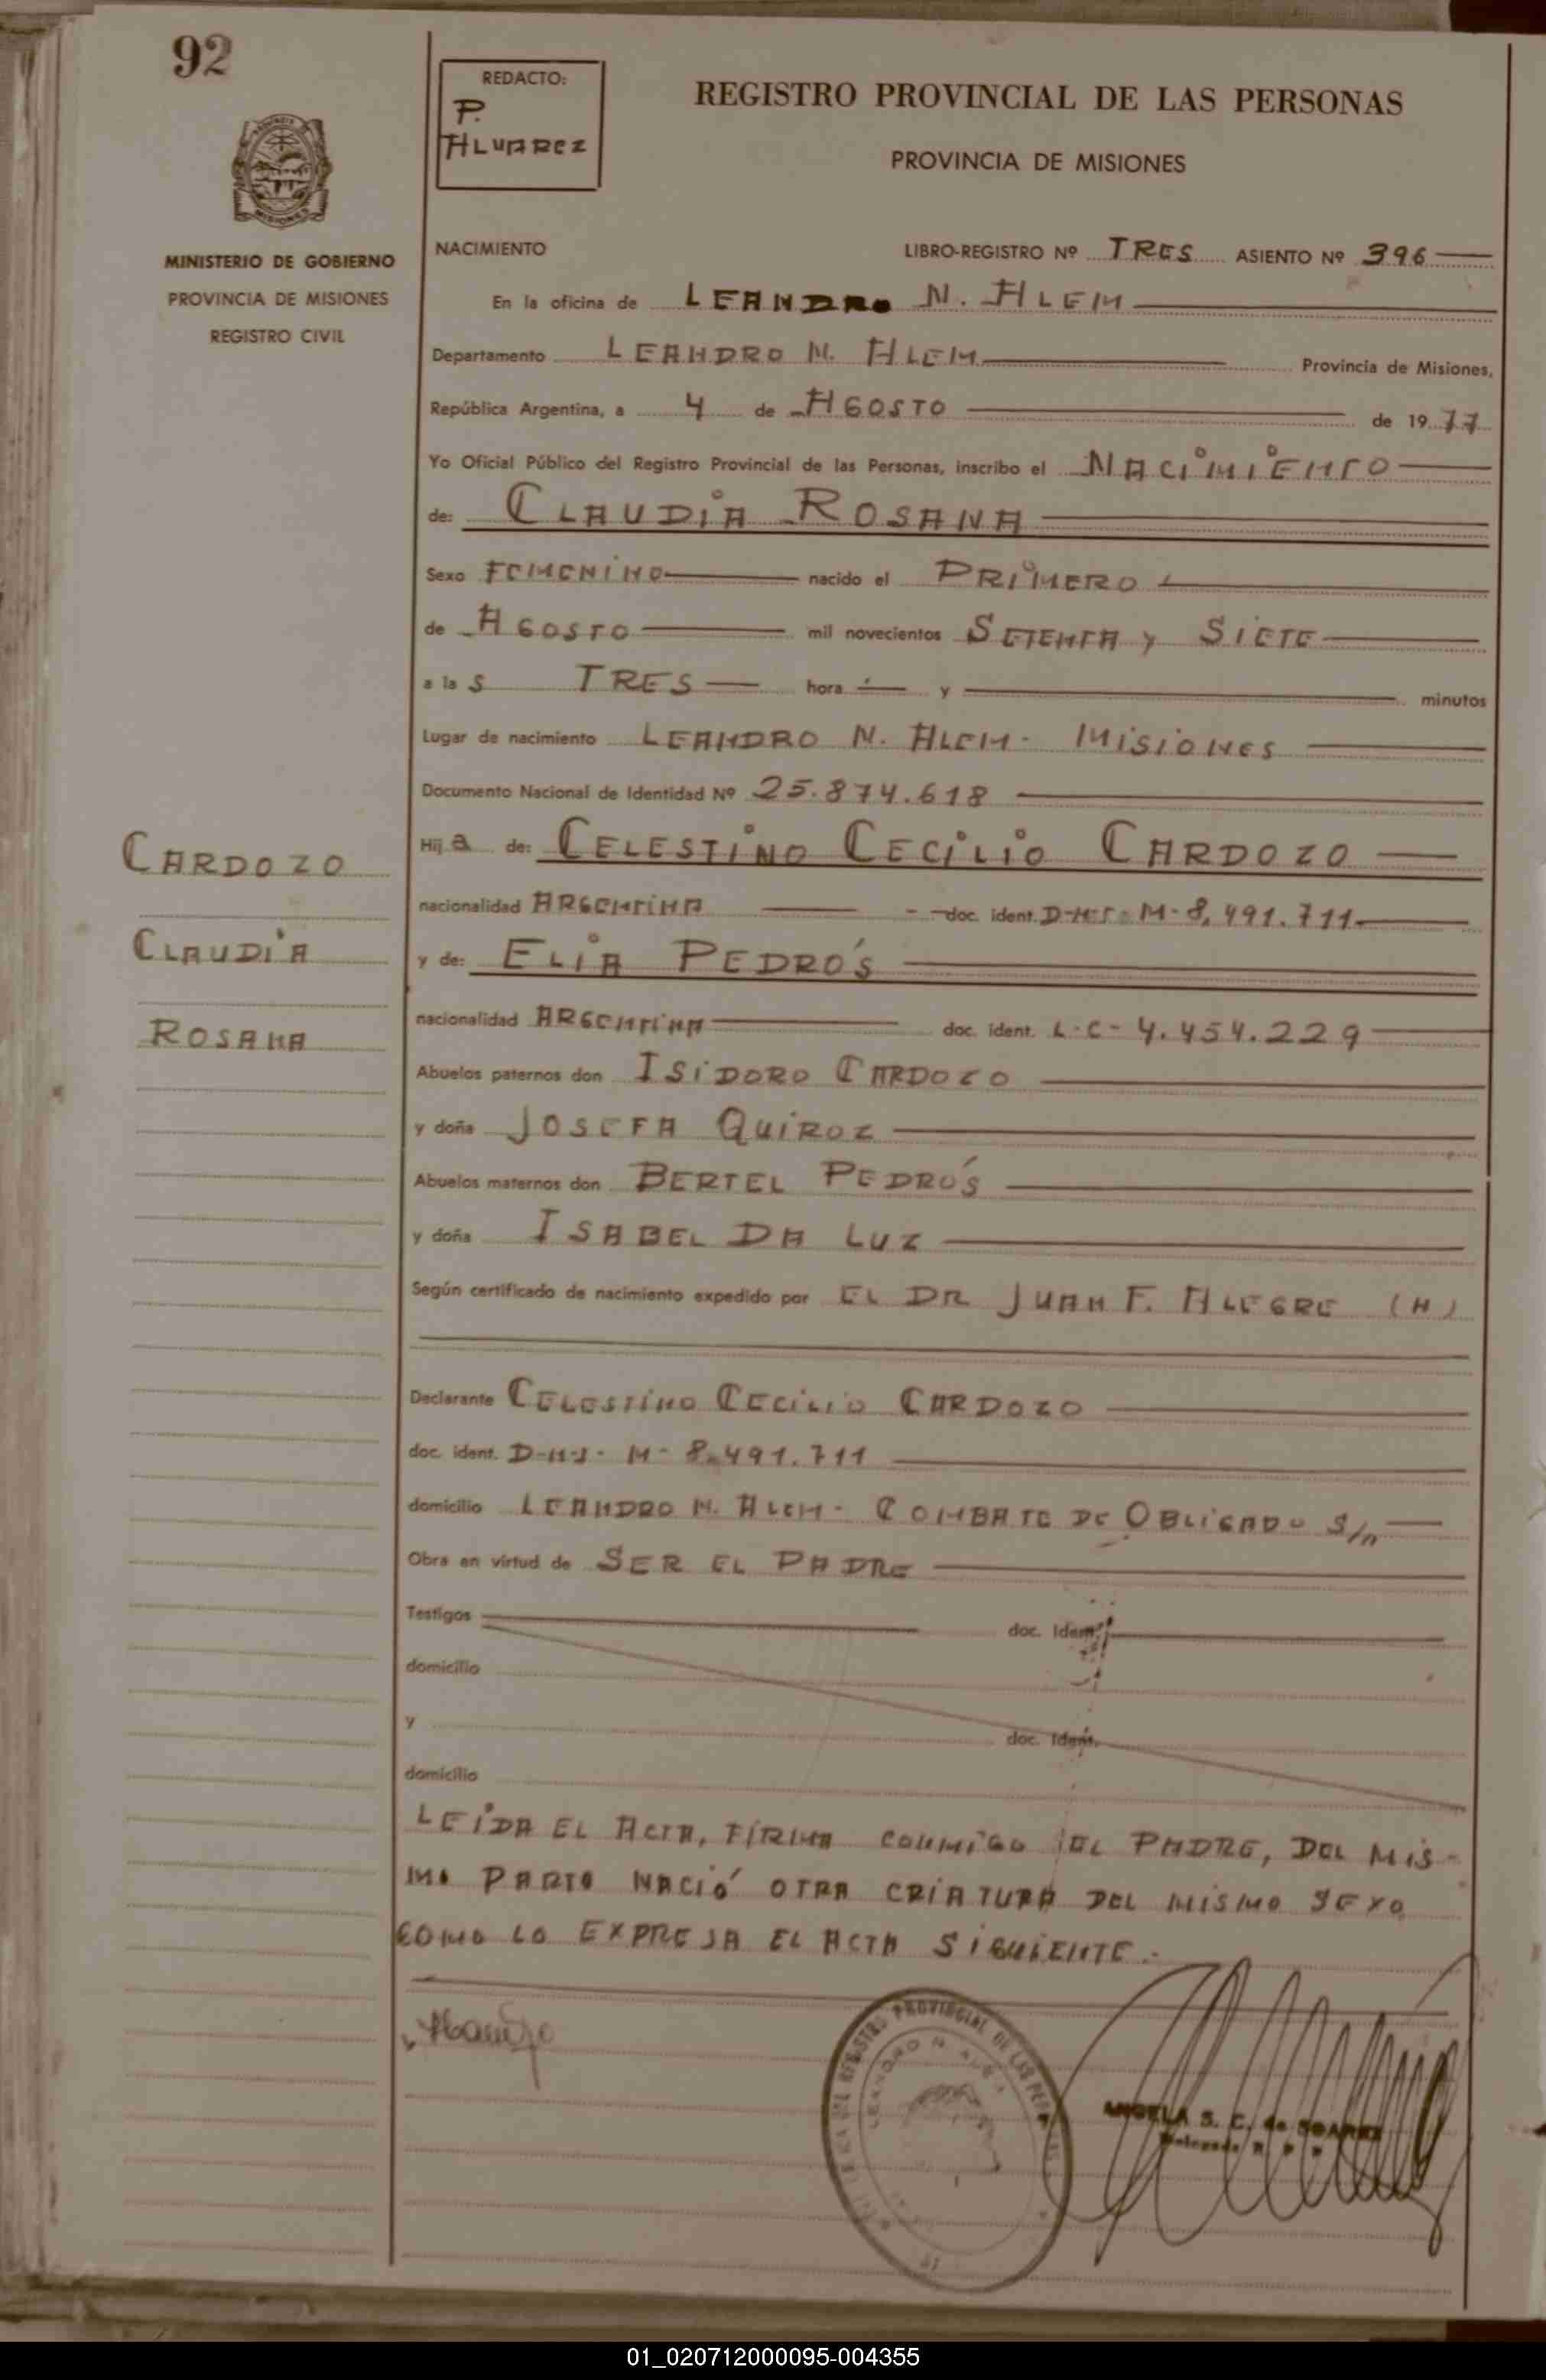 92
REDACTO:
P.
ALVAREZ
REGISTRO PROVINCIAL DE LAS PERSONAS
PROVINCIA DE MISIONES
MINISTERIO DE GOBIERNO
PROVINCIA DE MISIONES
REGISTRO CIVIL
NACIMIENTO LIBRO-REGISTRO Nº TRES ASIENTO Nº 396
En la oficina de LEANDRO N. ALEM
Departamento LEANDRO N. ALEM Provincia de Misiones,
República Argentina, a 4 de AGOSTO de 1977
Yo Oficial Público del Registro Provincial de las Personas, inscribo el NACIMIENTO
de: CLAUDIA ROSANA
Sexo FEMENINO nacido el PRIMERO
de AGOSTO mil novecientos SETENTA y SIETE
a la s TRES hora y minutos
Lugar de nacimiento LEANDRO N. ALEM - MISIONES
Documento Nacional de Identidad Nº 25.874.618
Hij a de: CELESTINO CECILIO CARDOZO
nacionalidad ARGENTINA doc. ident. D-N-I- M- 8.491.711
y de: ELIA PEDRÓS
nacionalidad ARGENTINA doc. ident. L-C- 4.454.229
Abuelos paternos don ISIDORO CARDOZO
y doña JOSEFA QUIROZ
Abuelos maternos don BERTEL PEDRÓS
y doña ISABEL DA LUZ
Según certificado de nacimiento expedido por EL DR JUAN F. ALEGRE (H)
Declarante CELESTINO CECILIO CARDOZO
doc. ident. D-N-I- M- 8.491.711
domicilio LEANDRO N. ALEM - COMBATE DE OBLIGADO S/n
Obra en virtud de SER EL PADRE
Testigos doc. Ident.
domicilio
y doc. Ident.
domicilio
LEIDA EL ACTA, FIRMA CONMIGO EL PADRE, DEL MIS-
MO PARTO NACIÓ OTRA CRIATURA DEL MISMO SEXO
COMO LO EXPRESA EL ACTA SIGUIENTE.-
CARDOZO
CLAUDIA
ROSANA
REGISTRO PROVINCIAL DE LAS
LEANDRO N. ALEM
ANGELA S. C. de SOAREZ
01_020712000095-004355